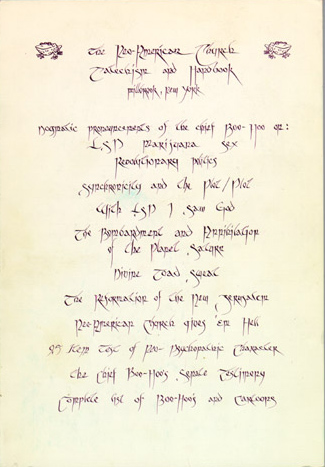 The Neo-American Church
Catechism and Handbook
Millbrook, New York
Dogmatic pronouncements of the Chief Boo-Hoo on:
LSD Marijuana Sex
Revolutionary Politics
Synchronicity and the Plot/Plot
With LSD I Saw God
The Bombardment and Annihilation
of the Planet Saturn
Divine Toad Sweat
The Reformation of the New Jerusalem
Neo-American Church Gives 'Em Hell
Item Test of Neo-Psychopathic Character
The Chief Boo-Hoo's Senate Testimony
Complete list of Boo-Hoos and Cartoons